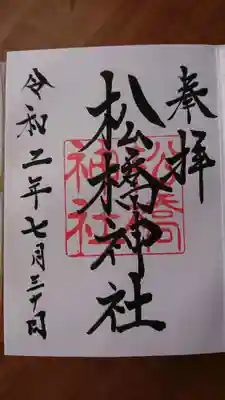 奉拝
松橋神社
松橋神社
令和二年七月三十日